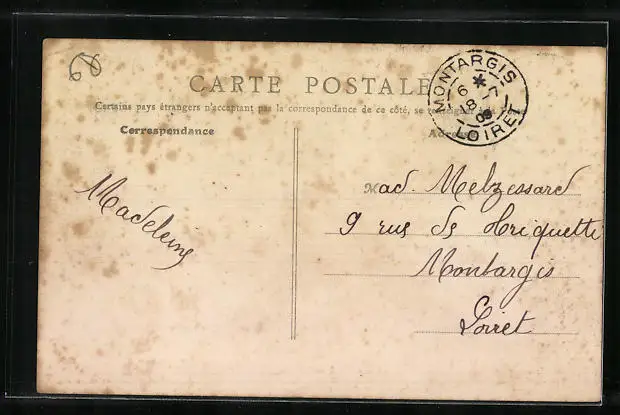 CARTE POSTALE
Certains pays étrangers n'acceptant pas la correspondance de ce côté, se renseigner à la
Correspondance
MONTARGIS
6 *
18 -7
09
LOIRET
Madeleine
Mad. Melzessard
9 rue de
Montargis
Loiret